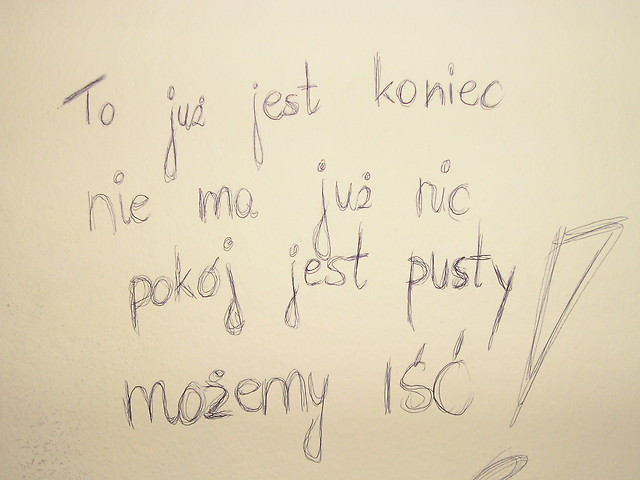 To już jest koniec
nie ma już nic
pokój jest pusty
możemy IŚĆ!